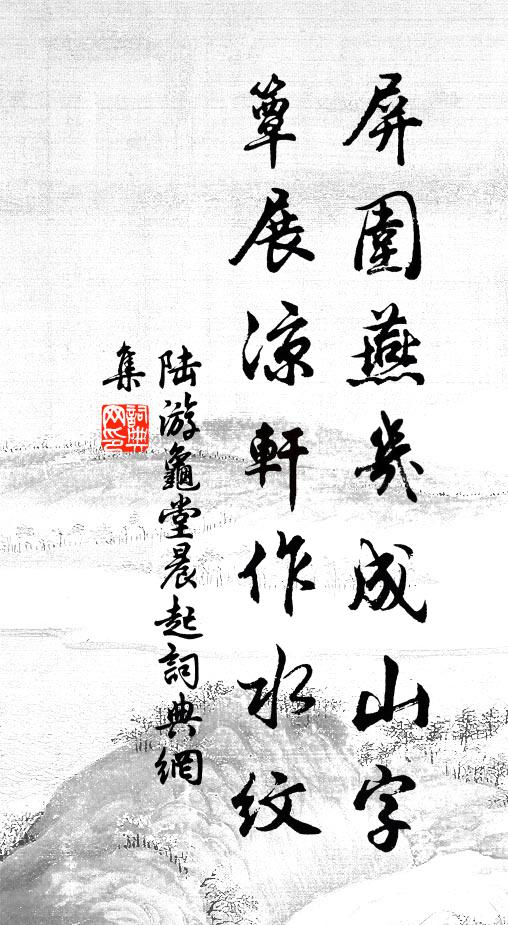 屏圍燕几成山字
簟展涼軒作水紋
陸游龜堂晨起詞典網
集
詞典網印